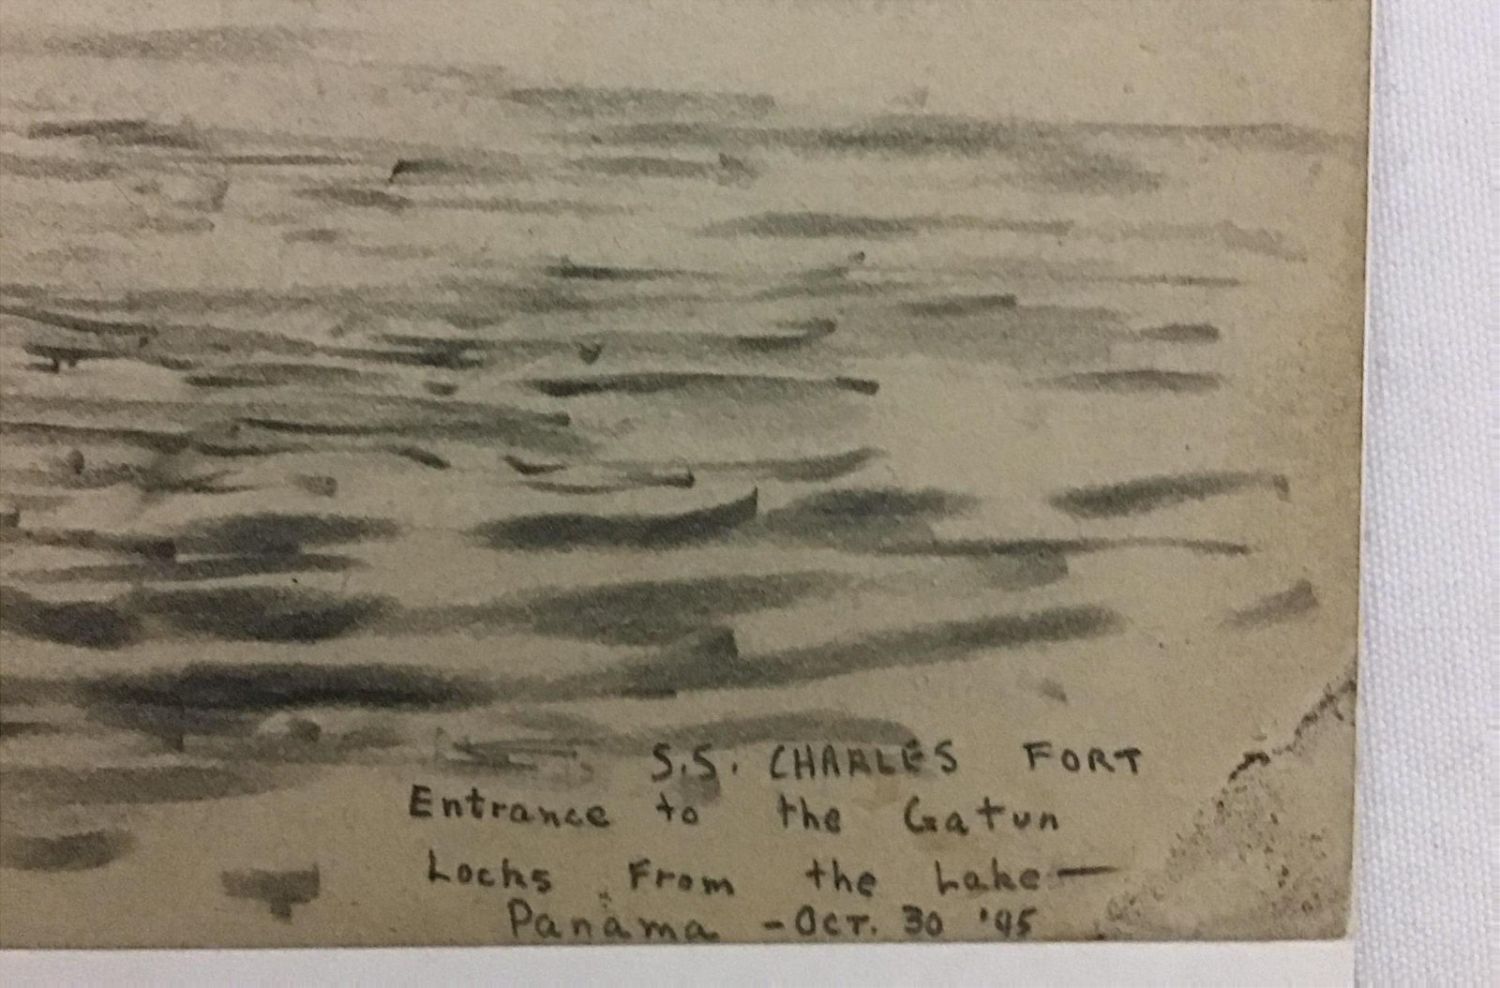 S.S. CHARLES FORT
Entrance to the Gatun
Locks From the Lake —
Panama - Oct. 30 '45